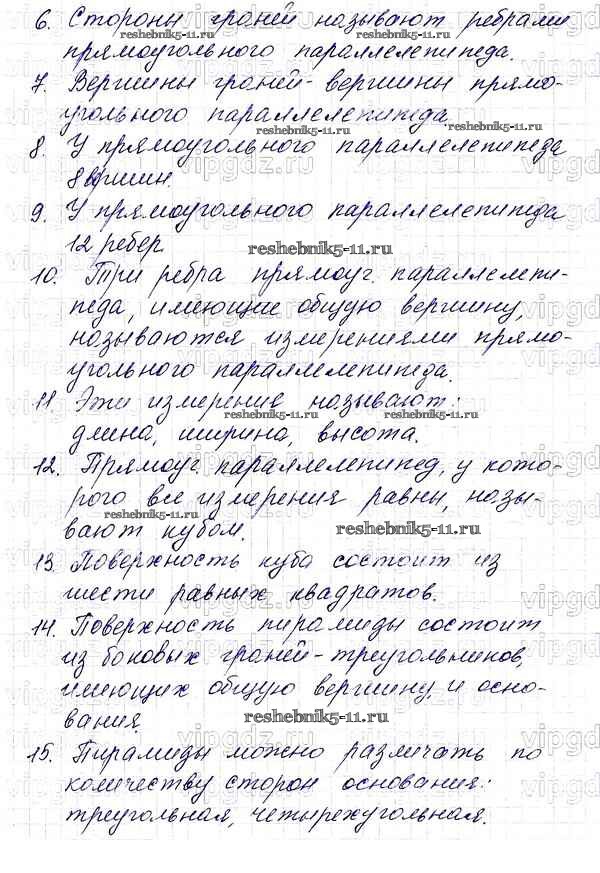 6. Стороны граней называют ребрами
reshebnik5-11.ru
прямоугольного параллелепипеда.
7. Вершины граней - вершины прямо-
угольного параллелепипеда.
reshebnik5-11.ru
8. У прямоугольного параллелепипеда
8 вершин.
reshebnik5-11.ru
9. У прямоугольного параллелепипеда
12 ребер
reshebnik5-11.ru
10. Три ребра прямоуг. параллелепи-
педа, имеющие общую вершину,
называются измерениями прямо-
угольного параллелепипеда.
11. Эти измерения называют:
reshebnik5-11.ru
длина, ширина, высота.
12. Прямоуг. параллелепипед, у кото-
рого все измерения равны, назы-
reshebnik5-11.ru
вают кубом.
reshebnik5-11.ru
13. Поверхность куба состоит из
шести равных квадратов.
14. Поверхность пирамиды состоит
из боковых граней - треугольников,
имеющих общую вершину, и осно-
вания.
reshebnik5-11.ru
15. Пирамиды можно различать по
количеству сторон основания:
треугольная, четырехугольная.
vipgdz.ru